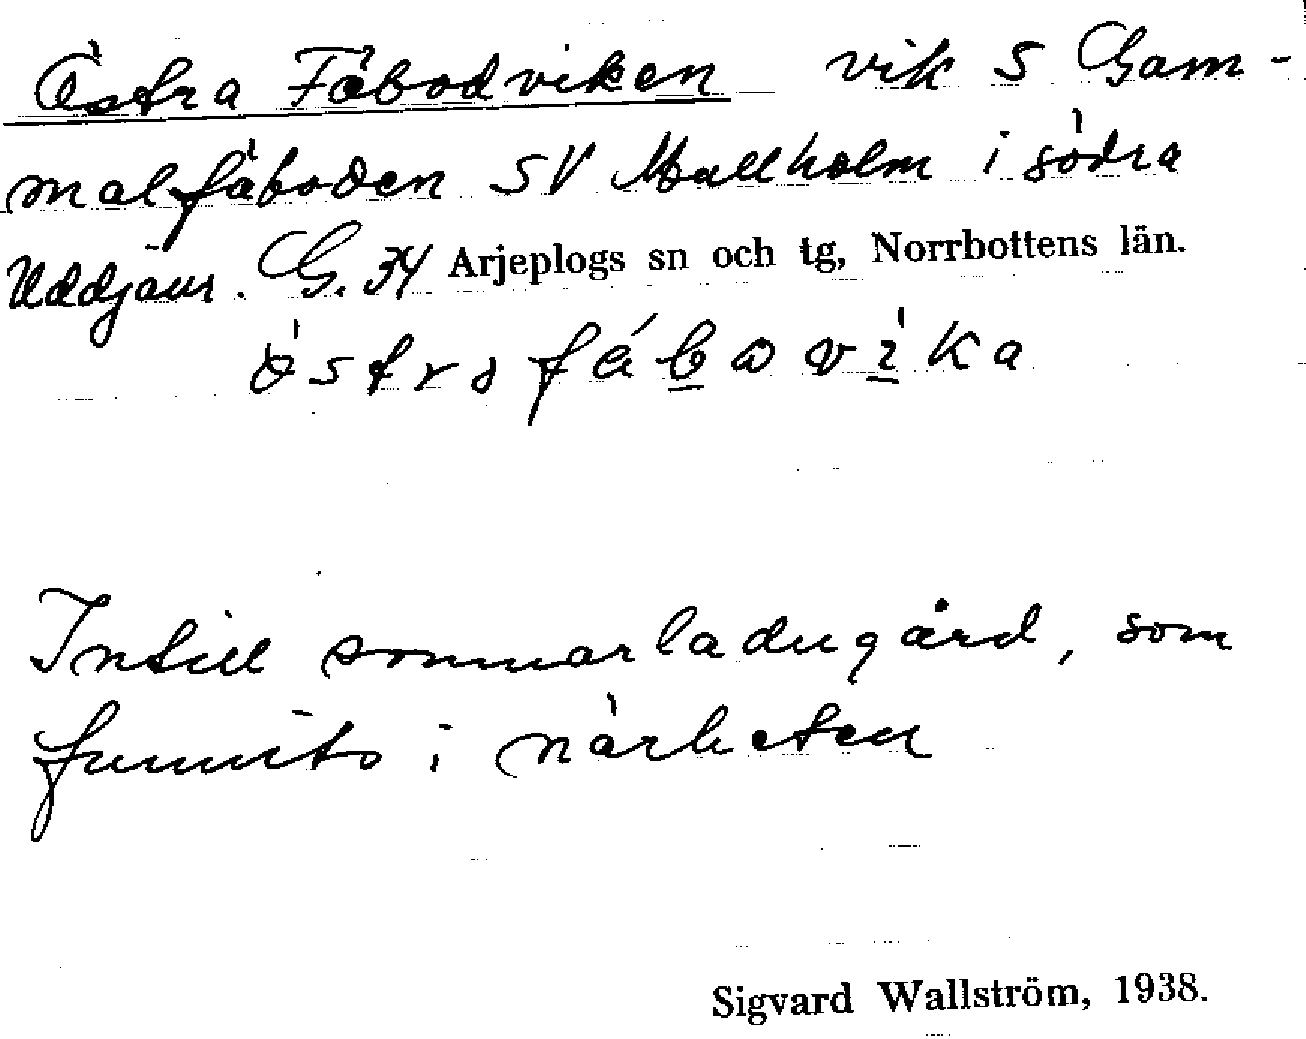 Östra Fäbodviken vik S Gam-
malfäboden SV Mallholm i södra
Uddjaur. G. 34 Arjeplogs sn och tg, Norrbottens län.
Intill sommarladugård, som
funnits i närheten
Sigvard Wallström, 1938.